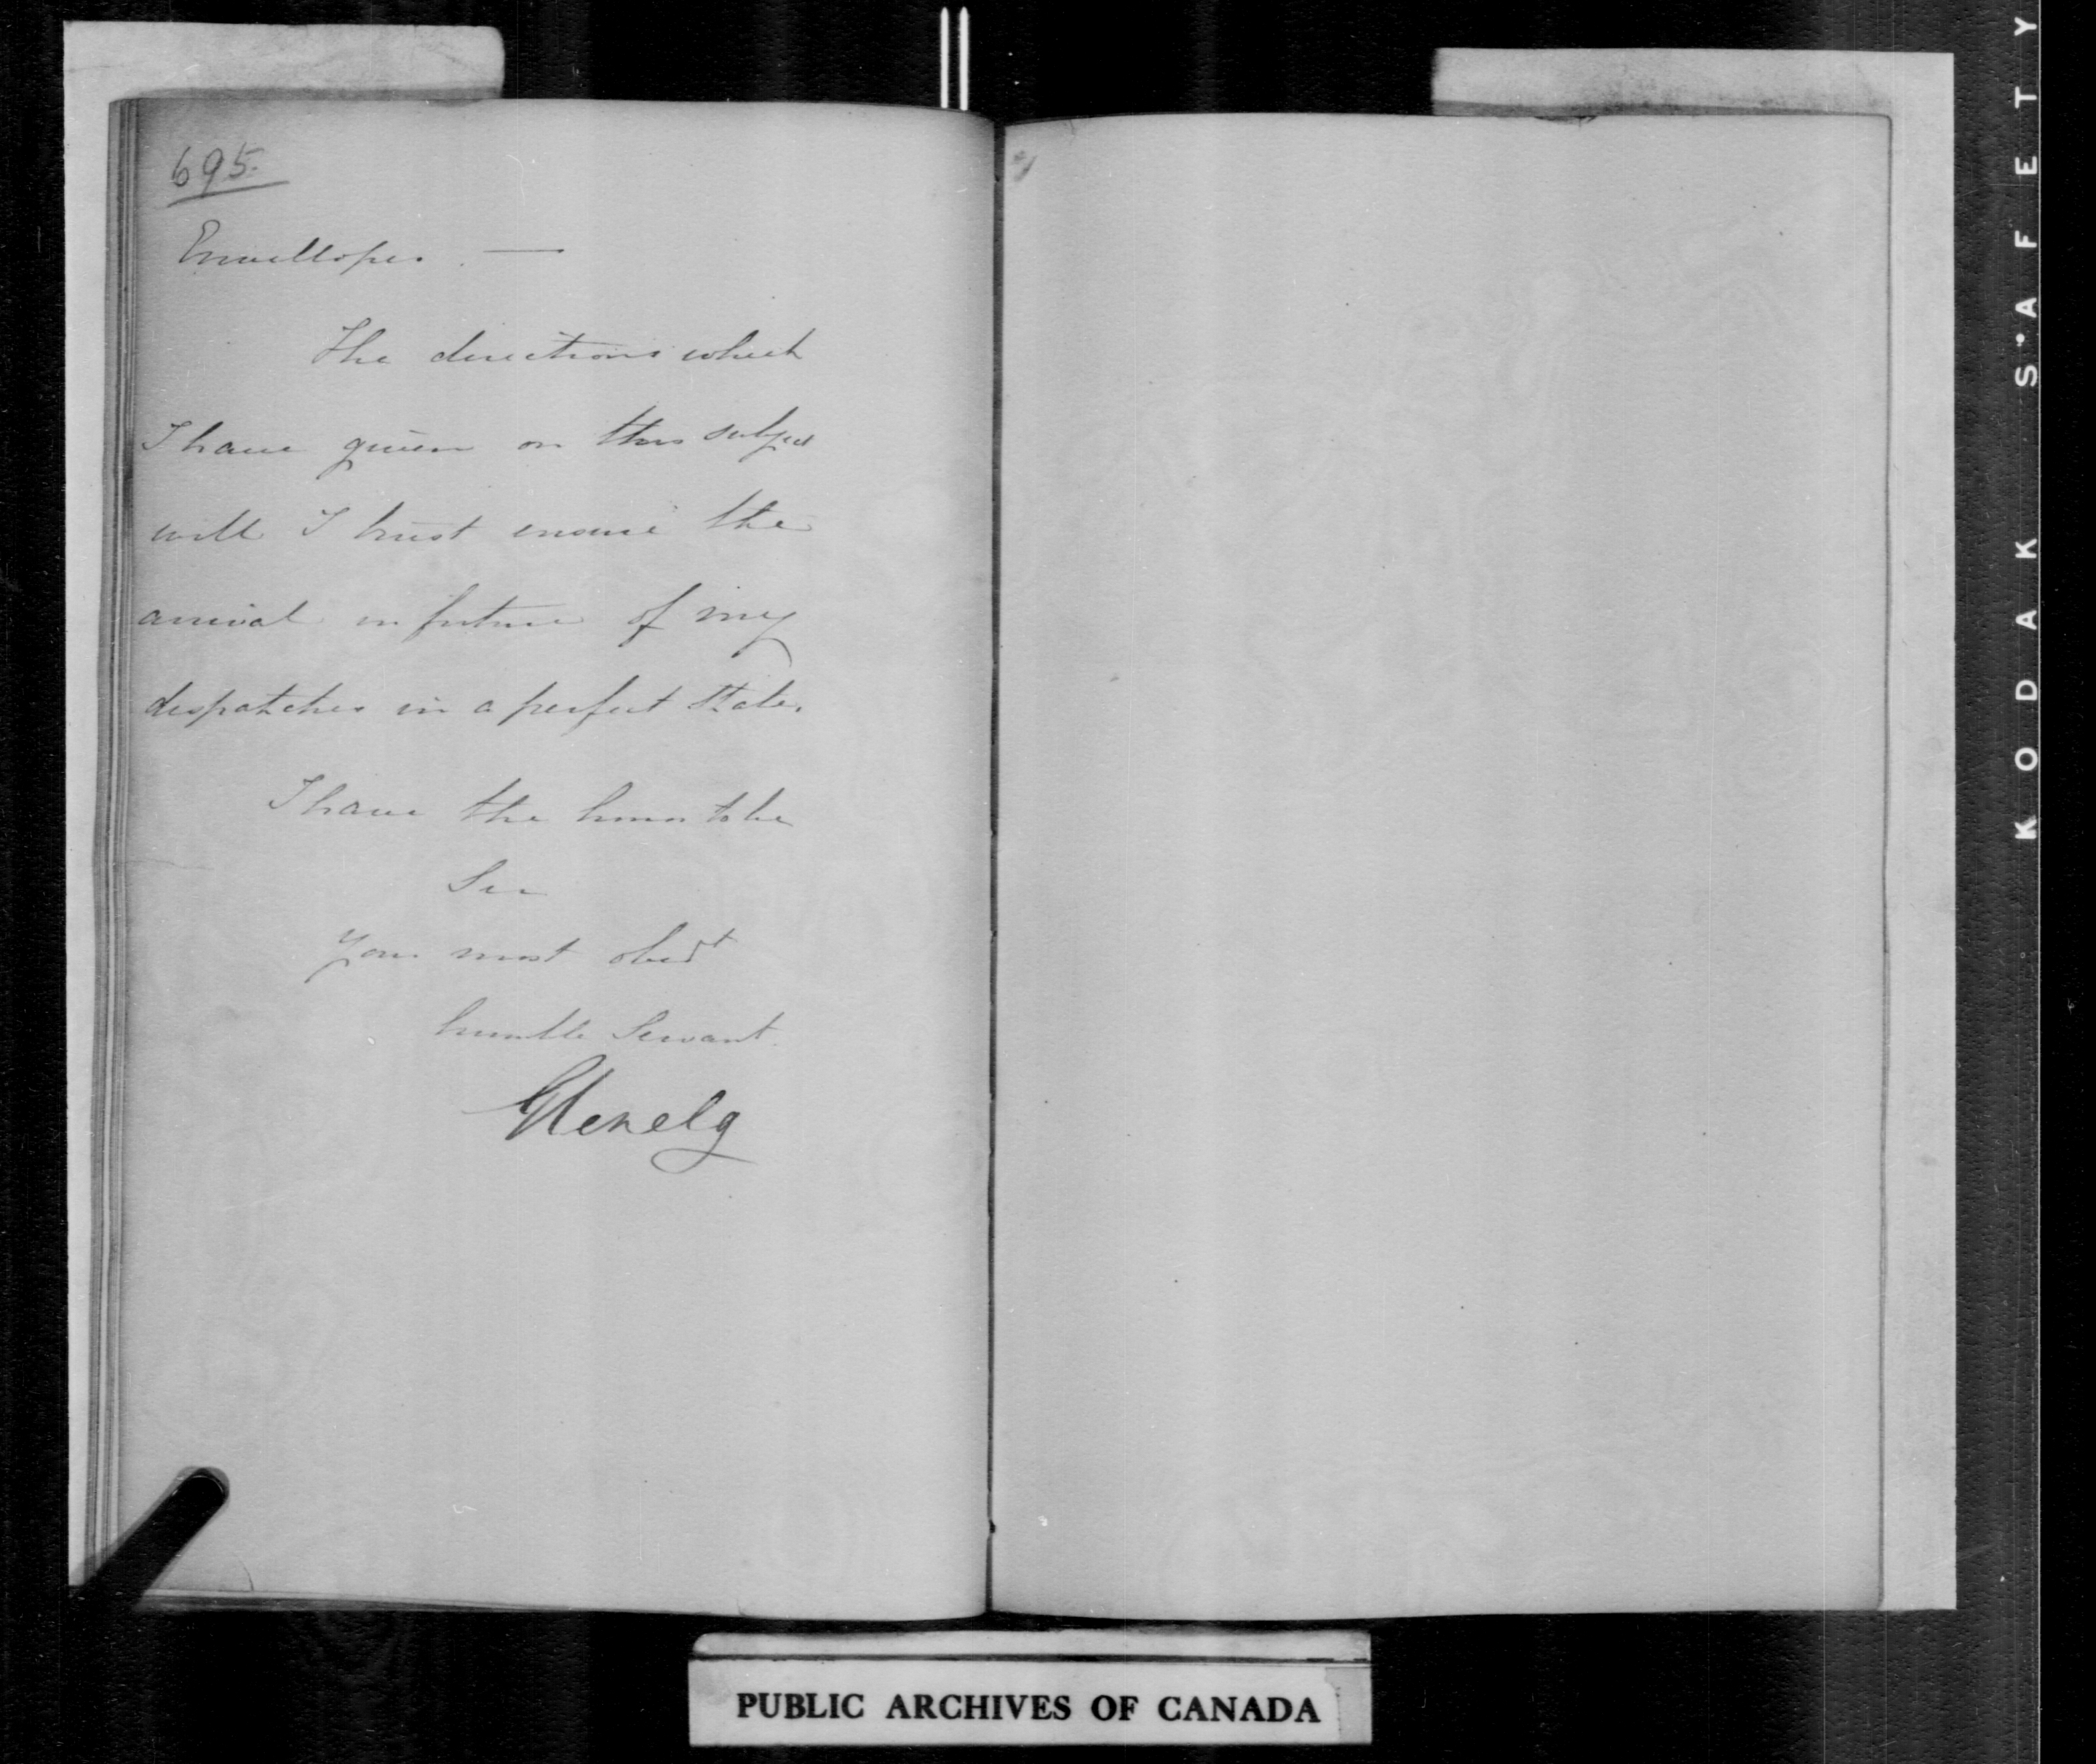 695.
Envellopes. —
The directions which
I have given on this subject
will I trust ensure the
arrival in future of my
despatches in a perfect state.
I have the honor to be
Sir
Your most obedt
humble Servant
Glenelg
PUBLIC ARCHIVES OF CANADA
KODAK SAFETY